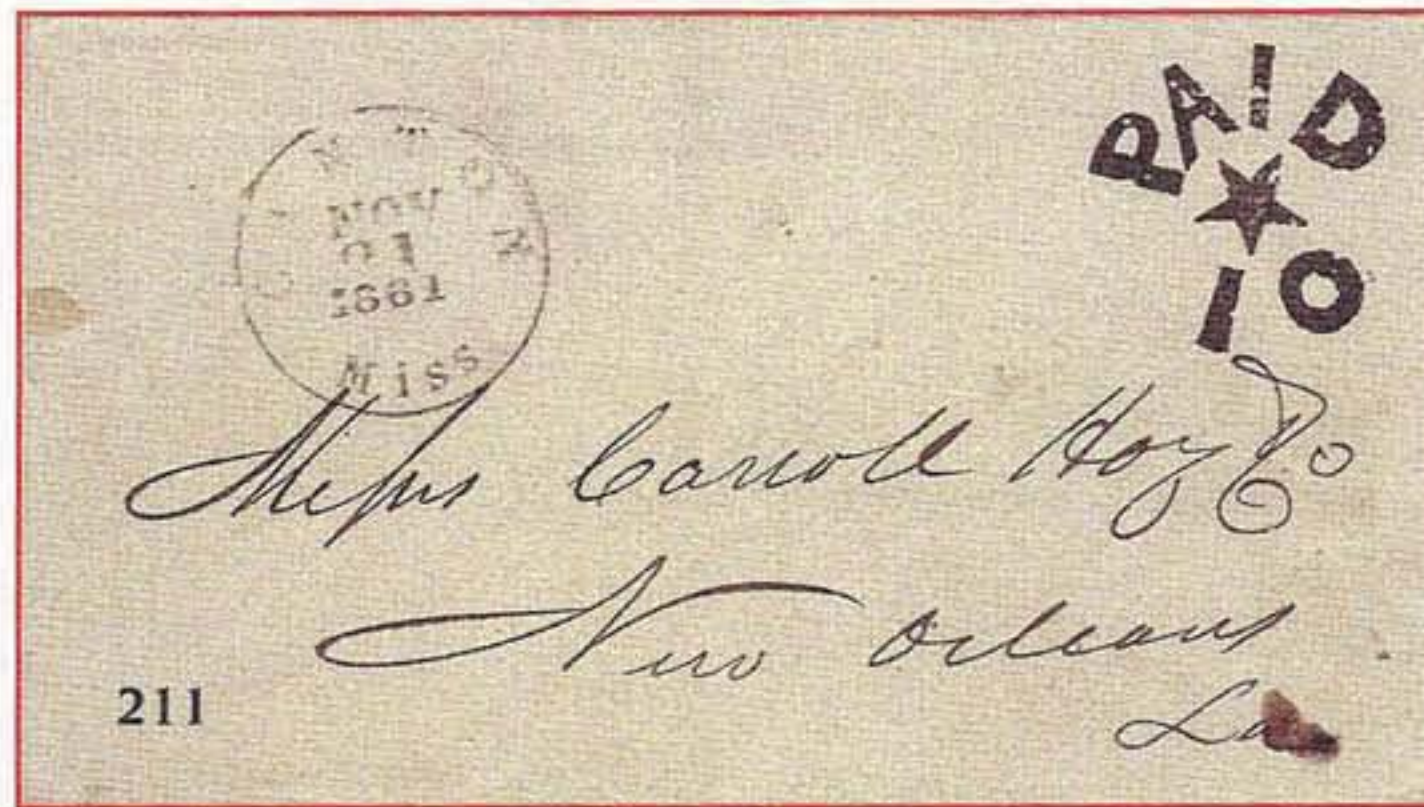 CANTON
NOV
21
1861
Miss
PAID
10
Messrs Carroll Hoy & Co
New Orleans
La
211